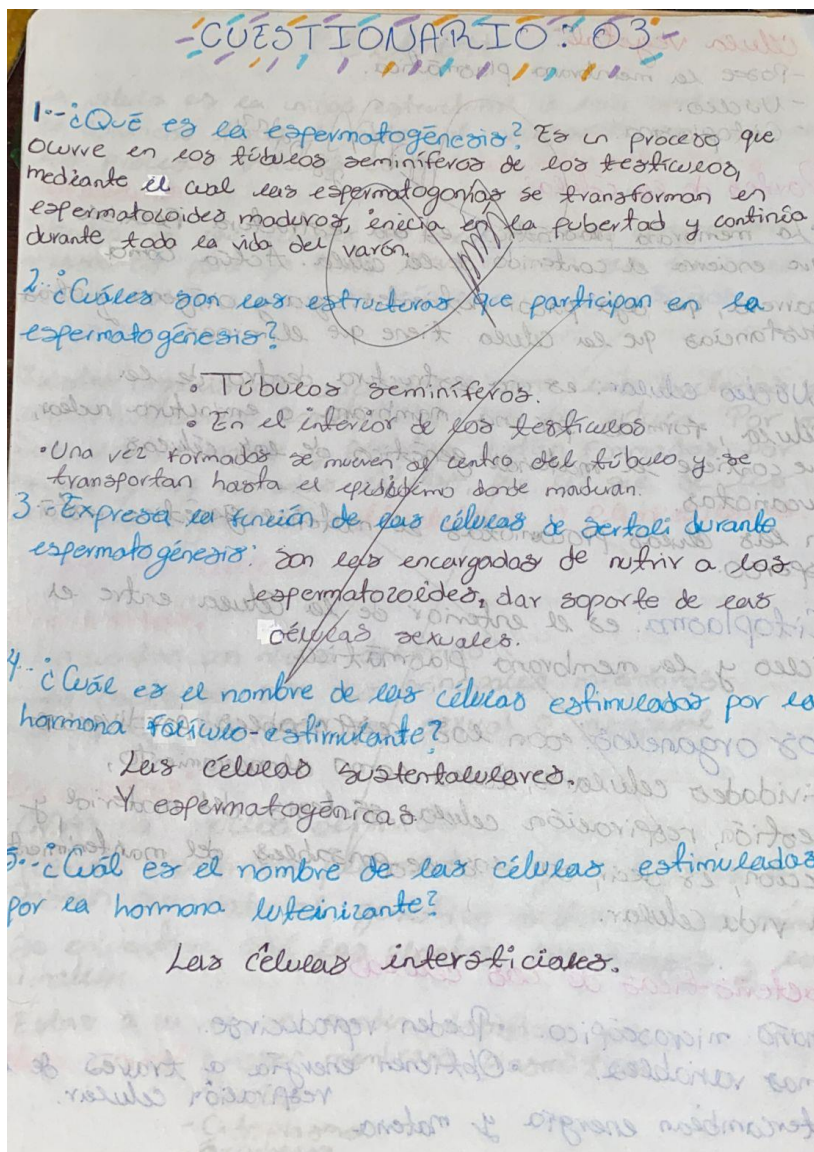 CUESTIONARIO: 03
1.-¿Qué es la espermatogénesis? Es un proceso que
ocurre en los túbulos seminíferos de los testículos,
mediante el cual las espermatogonias se transforman en
espermatozoides maduros, inicia en la pubertad y continúa
durante toda la vida del varón.
2.-¿Cuáles son las estructuras que participan en la
espermatogénesis?
• Túbulos seminíferos.
• En el interior de los testículos
• Una vez formados se mueven al centro del túbulo y se
transportan hasta el epididemo donde maduran.
3-Expresa la función de las células de sertoli durante
espermatogénesis: son las encargadas de nutrir a los
espermatozoides, dar soporte de las
células sexuales.
4.-¿Cuál es el nombre de las células estimuladas por la
hormona folículo-estimulante?
Las células sustentaculares.
Y espermatogénicas.
5.-¿Cuál es el nombre de las células estimuladas
por la hormona luteinizante?
Las células intersticiales.